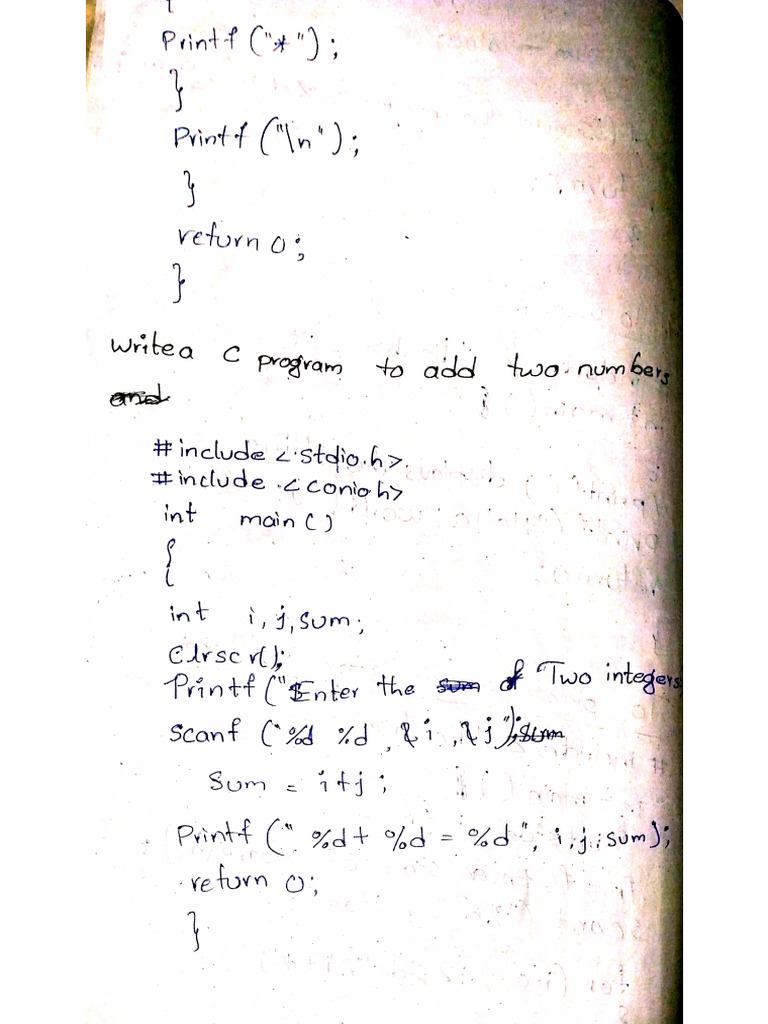 {
Printf ("*");
}
Printf ("\n");
}
return 0;
}
write a C program to add two numbers
#include <stdio.h>
#include <conio.h>
int main()
{
int i, j, sum;
Clrscr();
Printf ("Enter the Two integers
Scanf ("%d %d , &i , &j");
Sum = i+j;
Printf (" %d + %d = %d", i, j, sum);
return 0;
}